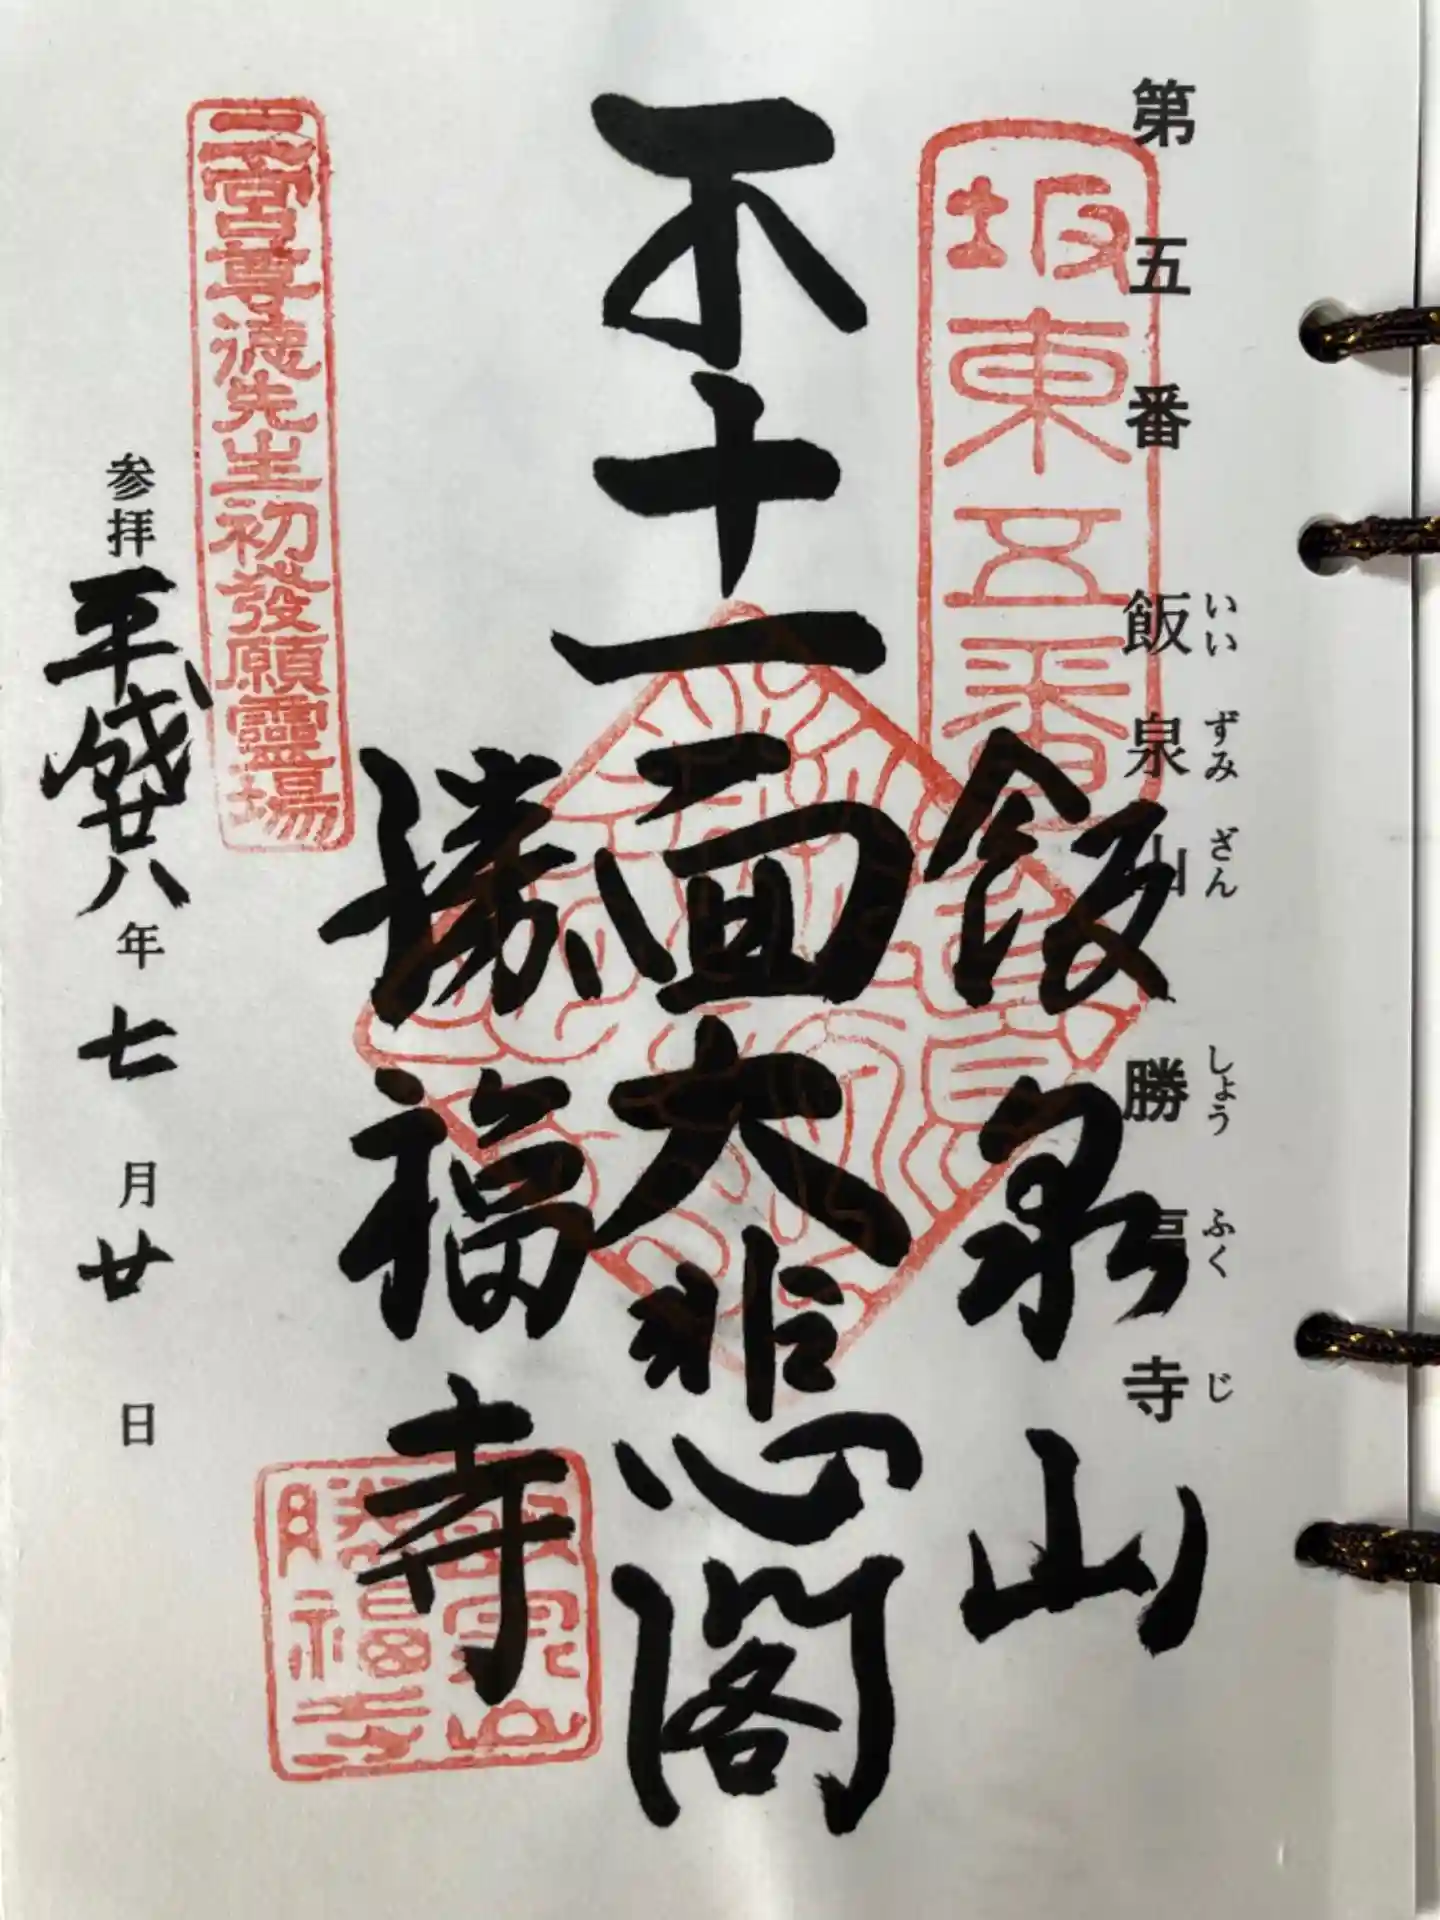 第五番 飯泉山 勝福寺
いいずみざん しょうふくじ
坂東五番
飯泉山
十一面大悲閣
勝福寺
飯泉山
勝福寺
二宮尊徳先生初發願靈場
参拝 平成廿八年七月廿日